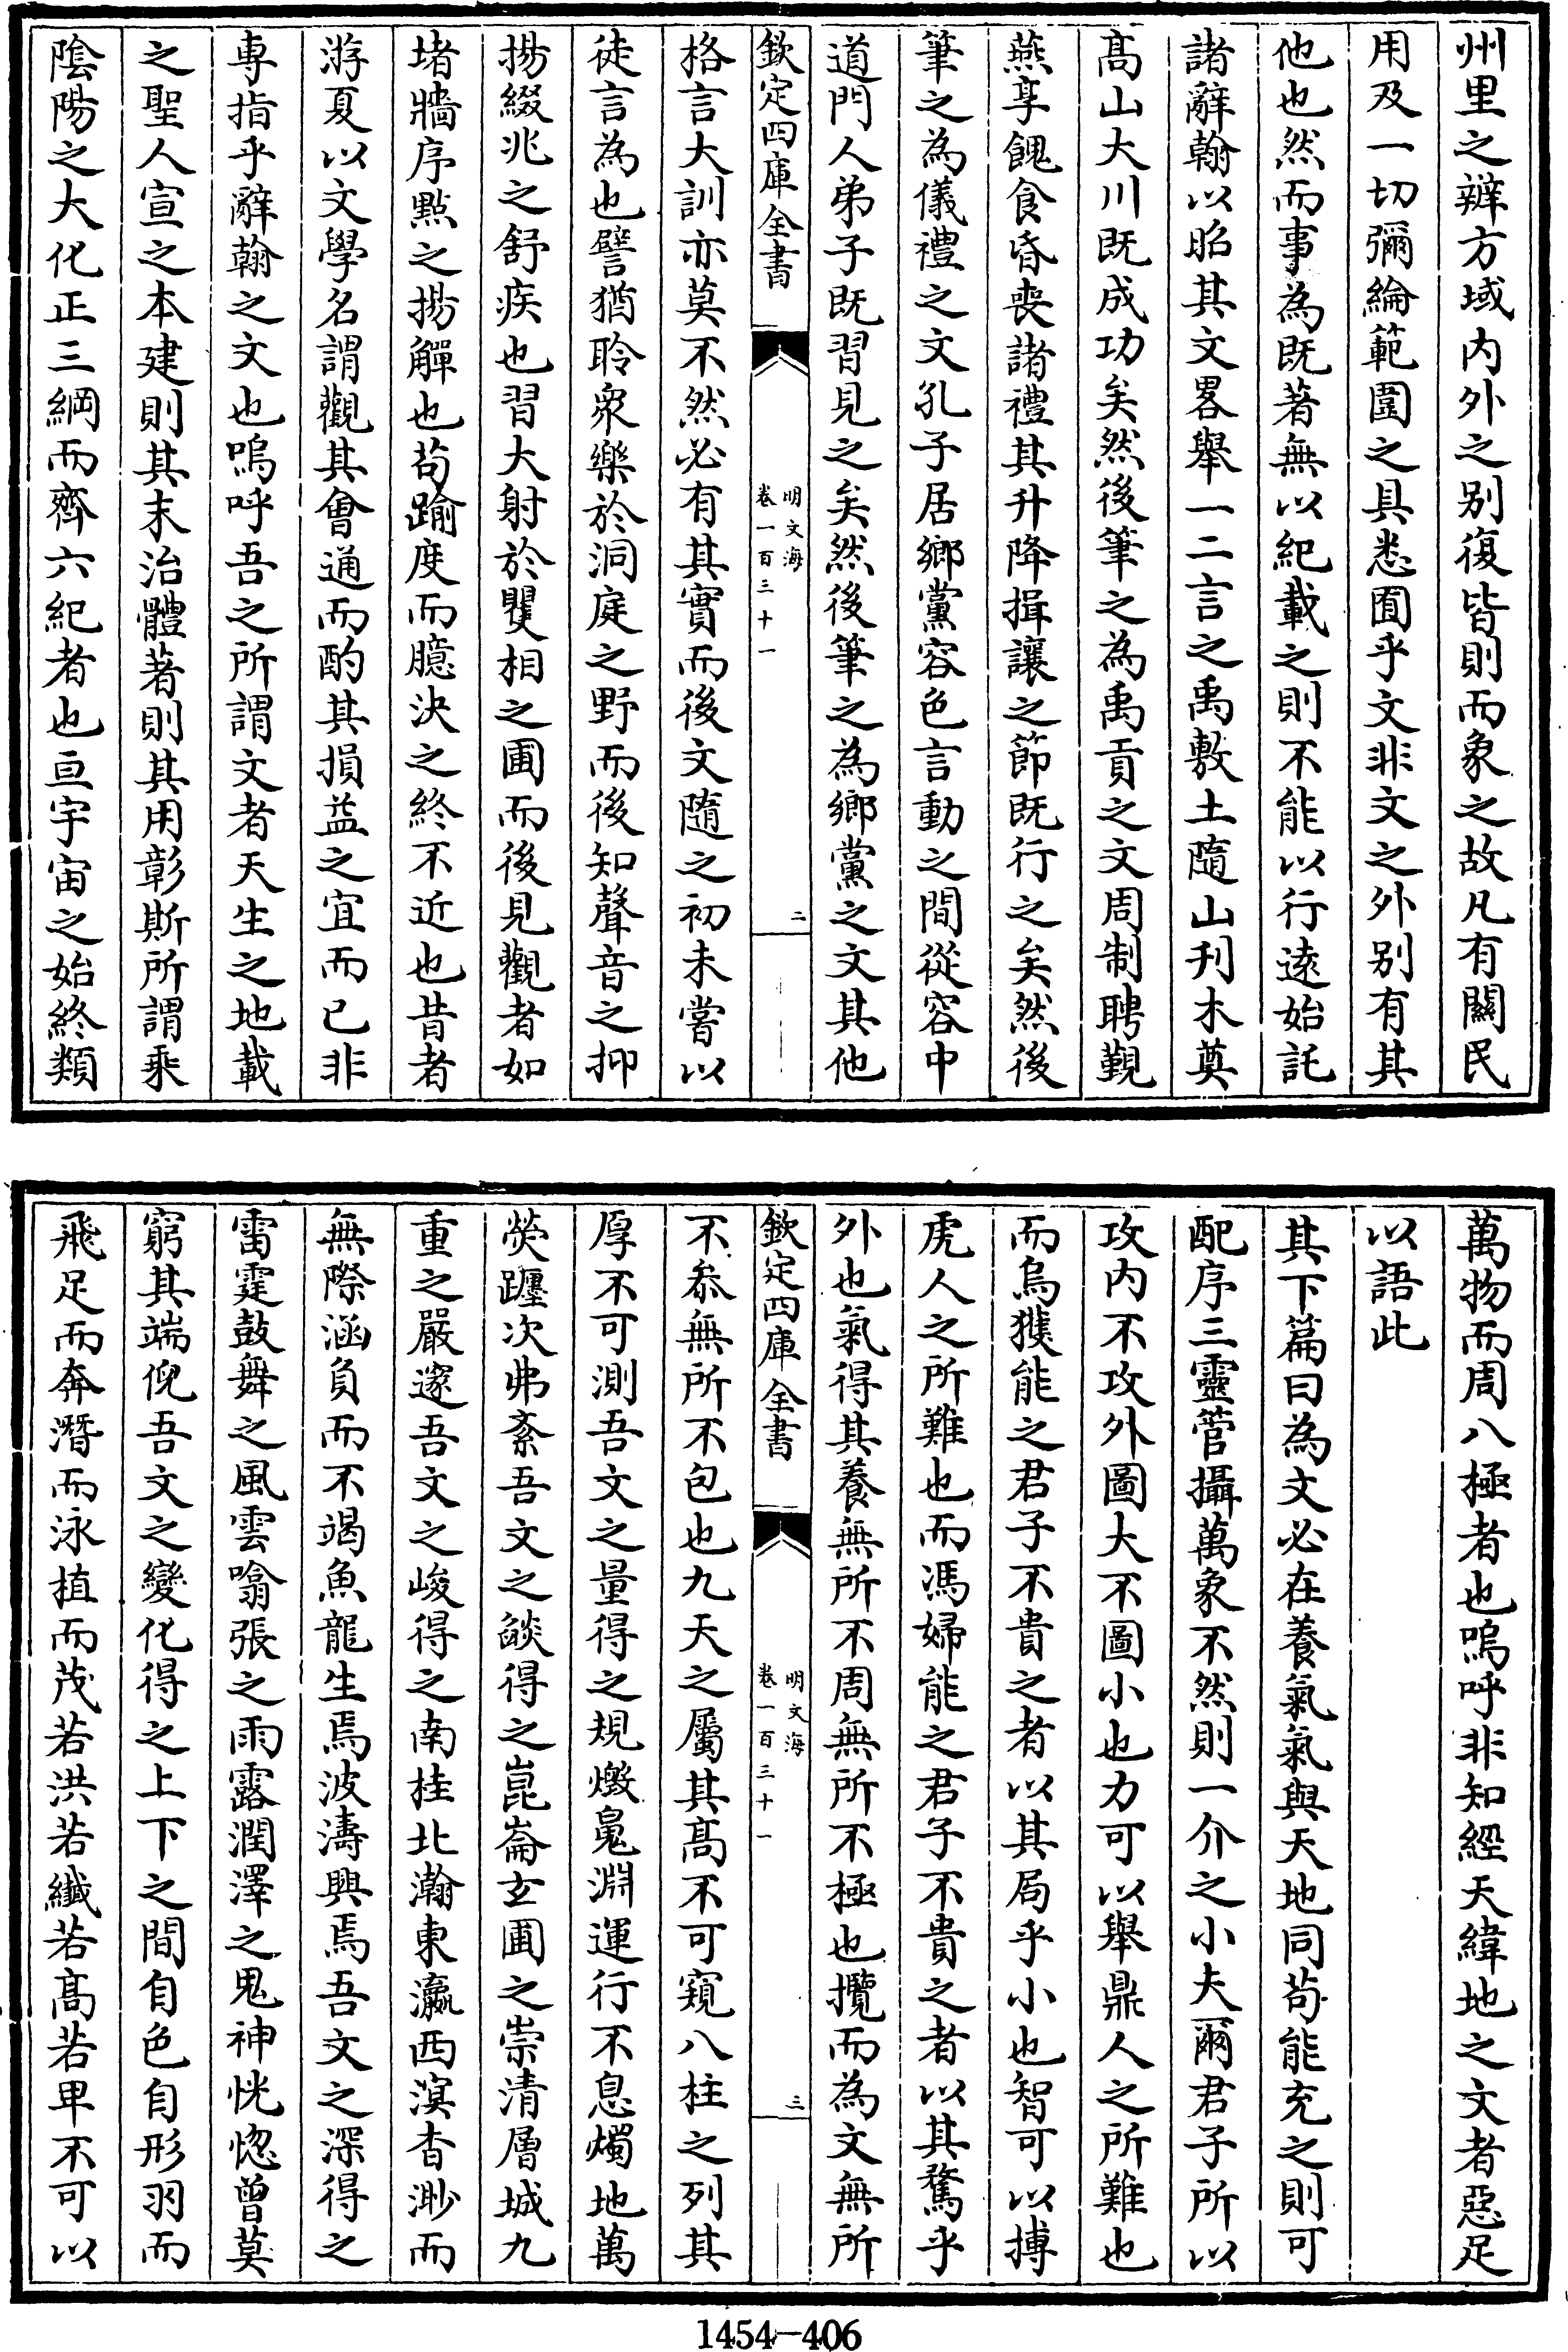 州里之辨方域内外之别復皆則而象之故凡有關民
用及一切彌綸範圍之具悉囿乎文非文之外别有其
他也然而事為既著無以紀載之則不能以行逺始託
諸辭翰以昭其文畧舉一二言之禹敷土隨山刋木奠
髙山大川既成功矣然後筆之為禹貢之文周制聘覲
燕享餽食昏喪諸禮其升降揖讓之節既行之矣然後
筆之為儀禮之文孔子居鄉黨容色言動之間從容中
道門人弟子既習見之矣然後筆之為鄉黨之文其他
欽定四庫全書
明文海
卷一百三十一
二
格言大訓亦莫不然必有其實而後文隨之初未嘗以
徒言為也譬猶聆衆樂於洞庭之野而後知聲音之抑
揚綴兆之舒疾也習大射於矍相之圃而後見觀者如
堵牆序㸃之揚觶也茍踰度而臆決之終不近也昔者
游夏以文學名謂觀其會通而酌其損益之宜而已非
專指乎辭翰之文也嗚呼吾之所謂文者天生之地載
之聖人宣之本建則其末治體著則其用彰斯所謂乘
隂陽之大化正三綱而齊六紀者也亘宇宙之始終類
萬物而周八極者也嗚呼非知經天緯地之文者惡足
以語此
其下篇曰為文必在養氣氣與天地同茍能充之則可
配序三靈管攝萬象不然則一介之小夫爾君子所以
攻内不攻外圖大不圖小也力可以舉鼎人之所難也
而烏獲能之君子不貴之者以其局乎小也智可以搏
虎人之所難也而馮婦能之君子不貴之者以其騖乎
外也氣得其養無所不周無所不極也攬而為文無所
欽定四庫全書
明文海
卷一百三十一
三
不叅無所不包也九天之屬其髙不可窺八柱之列其
厚不可測吾文之量得之規燬魄淵運行不息燭地萬
熒躔次弗紊吾文之燄得之崑崙玄圃之崇清層城九
重之嚴邃吾文之峻得之南桂北瀚東瀛西溟杳渺而
無際涵負而不竭魚龍生焉波濤興焉吾文之深得之
雷霆鼓舞之風雲噏張之雨露潤澤之鬼神恍惚曾莫
窮其端倪吾文之變化得之上下之間自色自形羽而
飛足而奔潛而泳植而茂若洪若纖若髙若卑不可以
1454-406